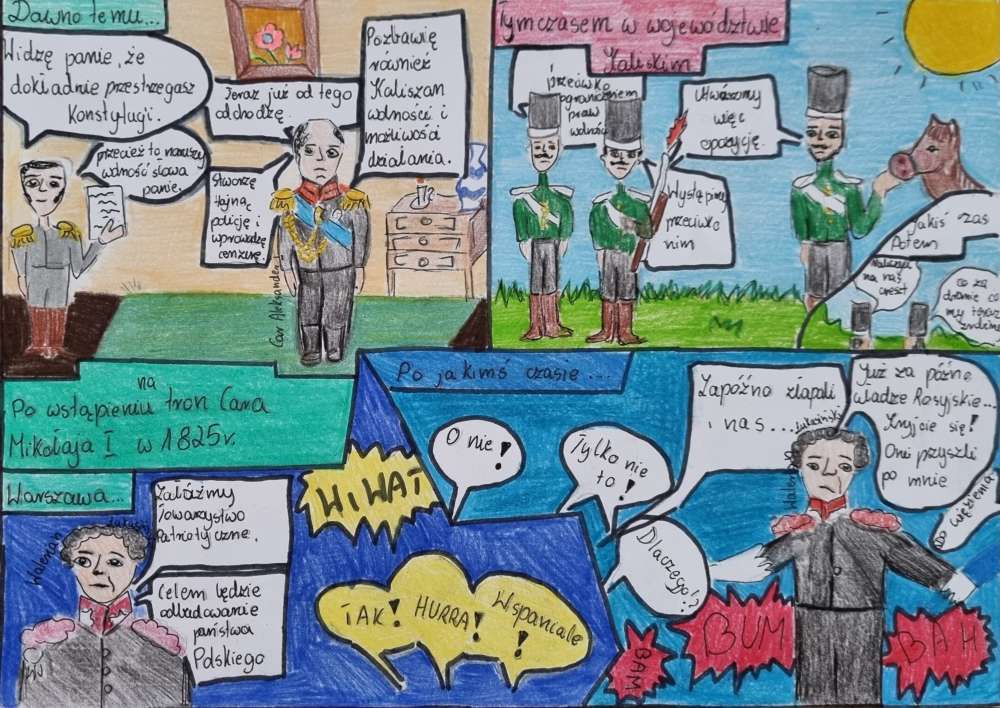 Dawno temu...
Widzę panie, że
dokładnie przestrzegasz
Konstytucji.
przecież to narusza
wolność słowa
panie.
Teraz już od tego
odchodzę.
Stworzę
tajną
policję i
wprowadzę
cenzurę.
Pozbawię
również
Kaliszan
wolności i
możliwości
działania.
Car Aleksander I
Tymczasem w województwie
Kaliskim
przeciwko
ograniczeniom
praw
wolności
Utwórzmy
więc
opozycję.
Wystąpimy
przeciwko
nim
jakiś czas
Potem
na naś
Co za
my teraz
zrobimy
Po wstąpieniu na tron Cara
Mikołaja I w 1825r.
Warszawa...
Załóżmy
Towarzystwo
Patriotyczne.
Celem będzie
odbudowanie
państwa
Polskiego
Walerian
WIWAT
TAK!
HURRA!
Wspaniale!
Po jakimś czasie...
O nie!
Tylko nie
to!
Zapóźno złapali
i nas...
Dlaczego!?
Już za późno
władze Rosyjskie...
Kryjcie się!
Oni przyszli
po mnie
Do więzienia
Walerian
Łukasiński
BAM
BUM
BAH